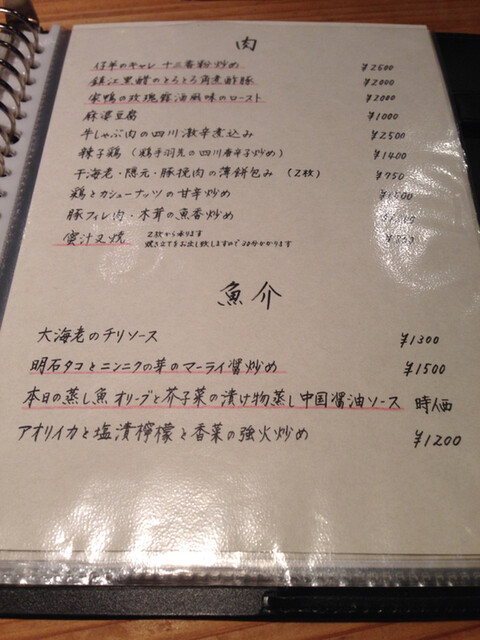 肉
仔羊のキャレ 十三香粉炒め ¥2500
鎮江黒酢のとろとろ角煮酢豚 ¥2000
家鴨の玫瑰露油風味のロースト ¥2000
麻婆豆腐 ¥1000
牛しゃぶ肉の四川激辛煮込み ¥2500
辣子鶏（鶏手羽先の四川唐辛子炒め） ¥1400
干海老・隠元・豚挽肉の薄餅包み（2枚） ¥750
鶏とカシューナッツの甘辛炒め
豚フィレ肉・木茸の魚香炒め
蜜汁叉焼 2枚から承ります
焼き立てをお出し致しますので20分かかります
魚介
大海老のチリソース ¥1300
明石タコとニンニクの芽のマーライ醤炒め ¥1500
本日の蒸し魚 オリーブと芥子菜の漬け物蒸し中国醤油ソース 時価
アオリイカと塩漬檸檬と香菜の強火炒め ¥1200